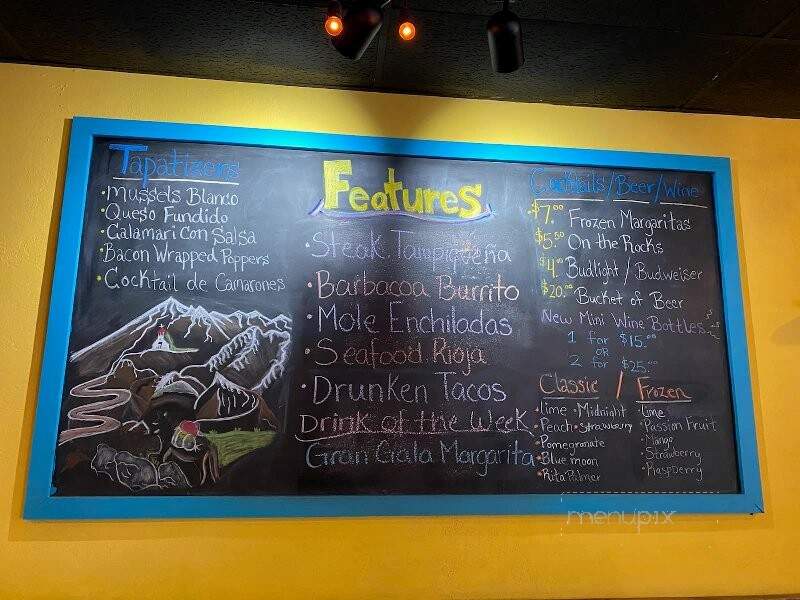 Tapatizers
• Mussels Blanco
• Queso Fundido
• Calamari Con Salsa
• Bacon Wrapped Poppers
• Cocktail de Camarones
Features
• Steak Tampiqueña
• Barbacoa Burrito
• Mole Enchiladas
• Seafood Rioja
• Drunken Tacos
Drink of the Week
Gran Gala Margarita
Cocktails/Beer/Wine
$7.00 Frozen Margaritas
$5.50 On the Rocks
$4.00 Budlight / Budweiser
$20.00 Bucket of Beer
New Mini Wine Bottles
1 for $15.00
OR
2 for $25.00
Classic / Frozen
• Lime • Midnight
• Peach • Strawberry
• Pomegranate
• Blue moon
• Rita Palmer
• Lime
• Passion Fruit
• Mango
• Strawberry
• Raspberry
menupix